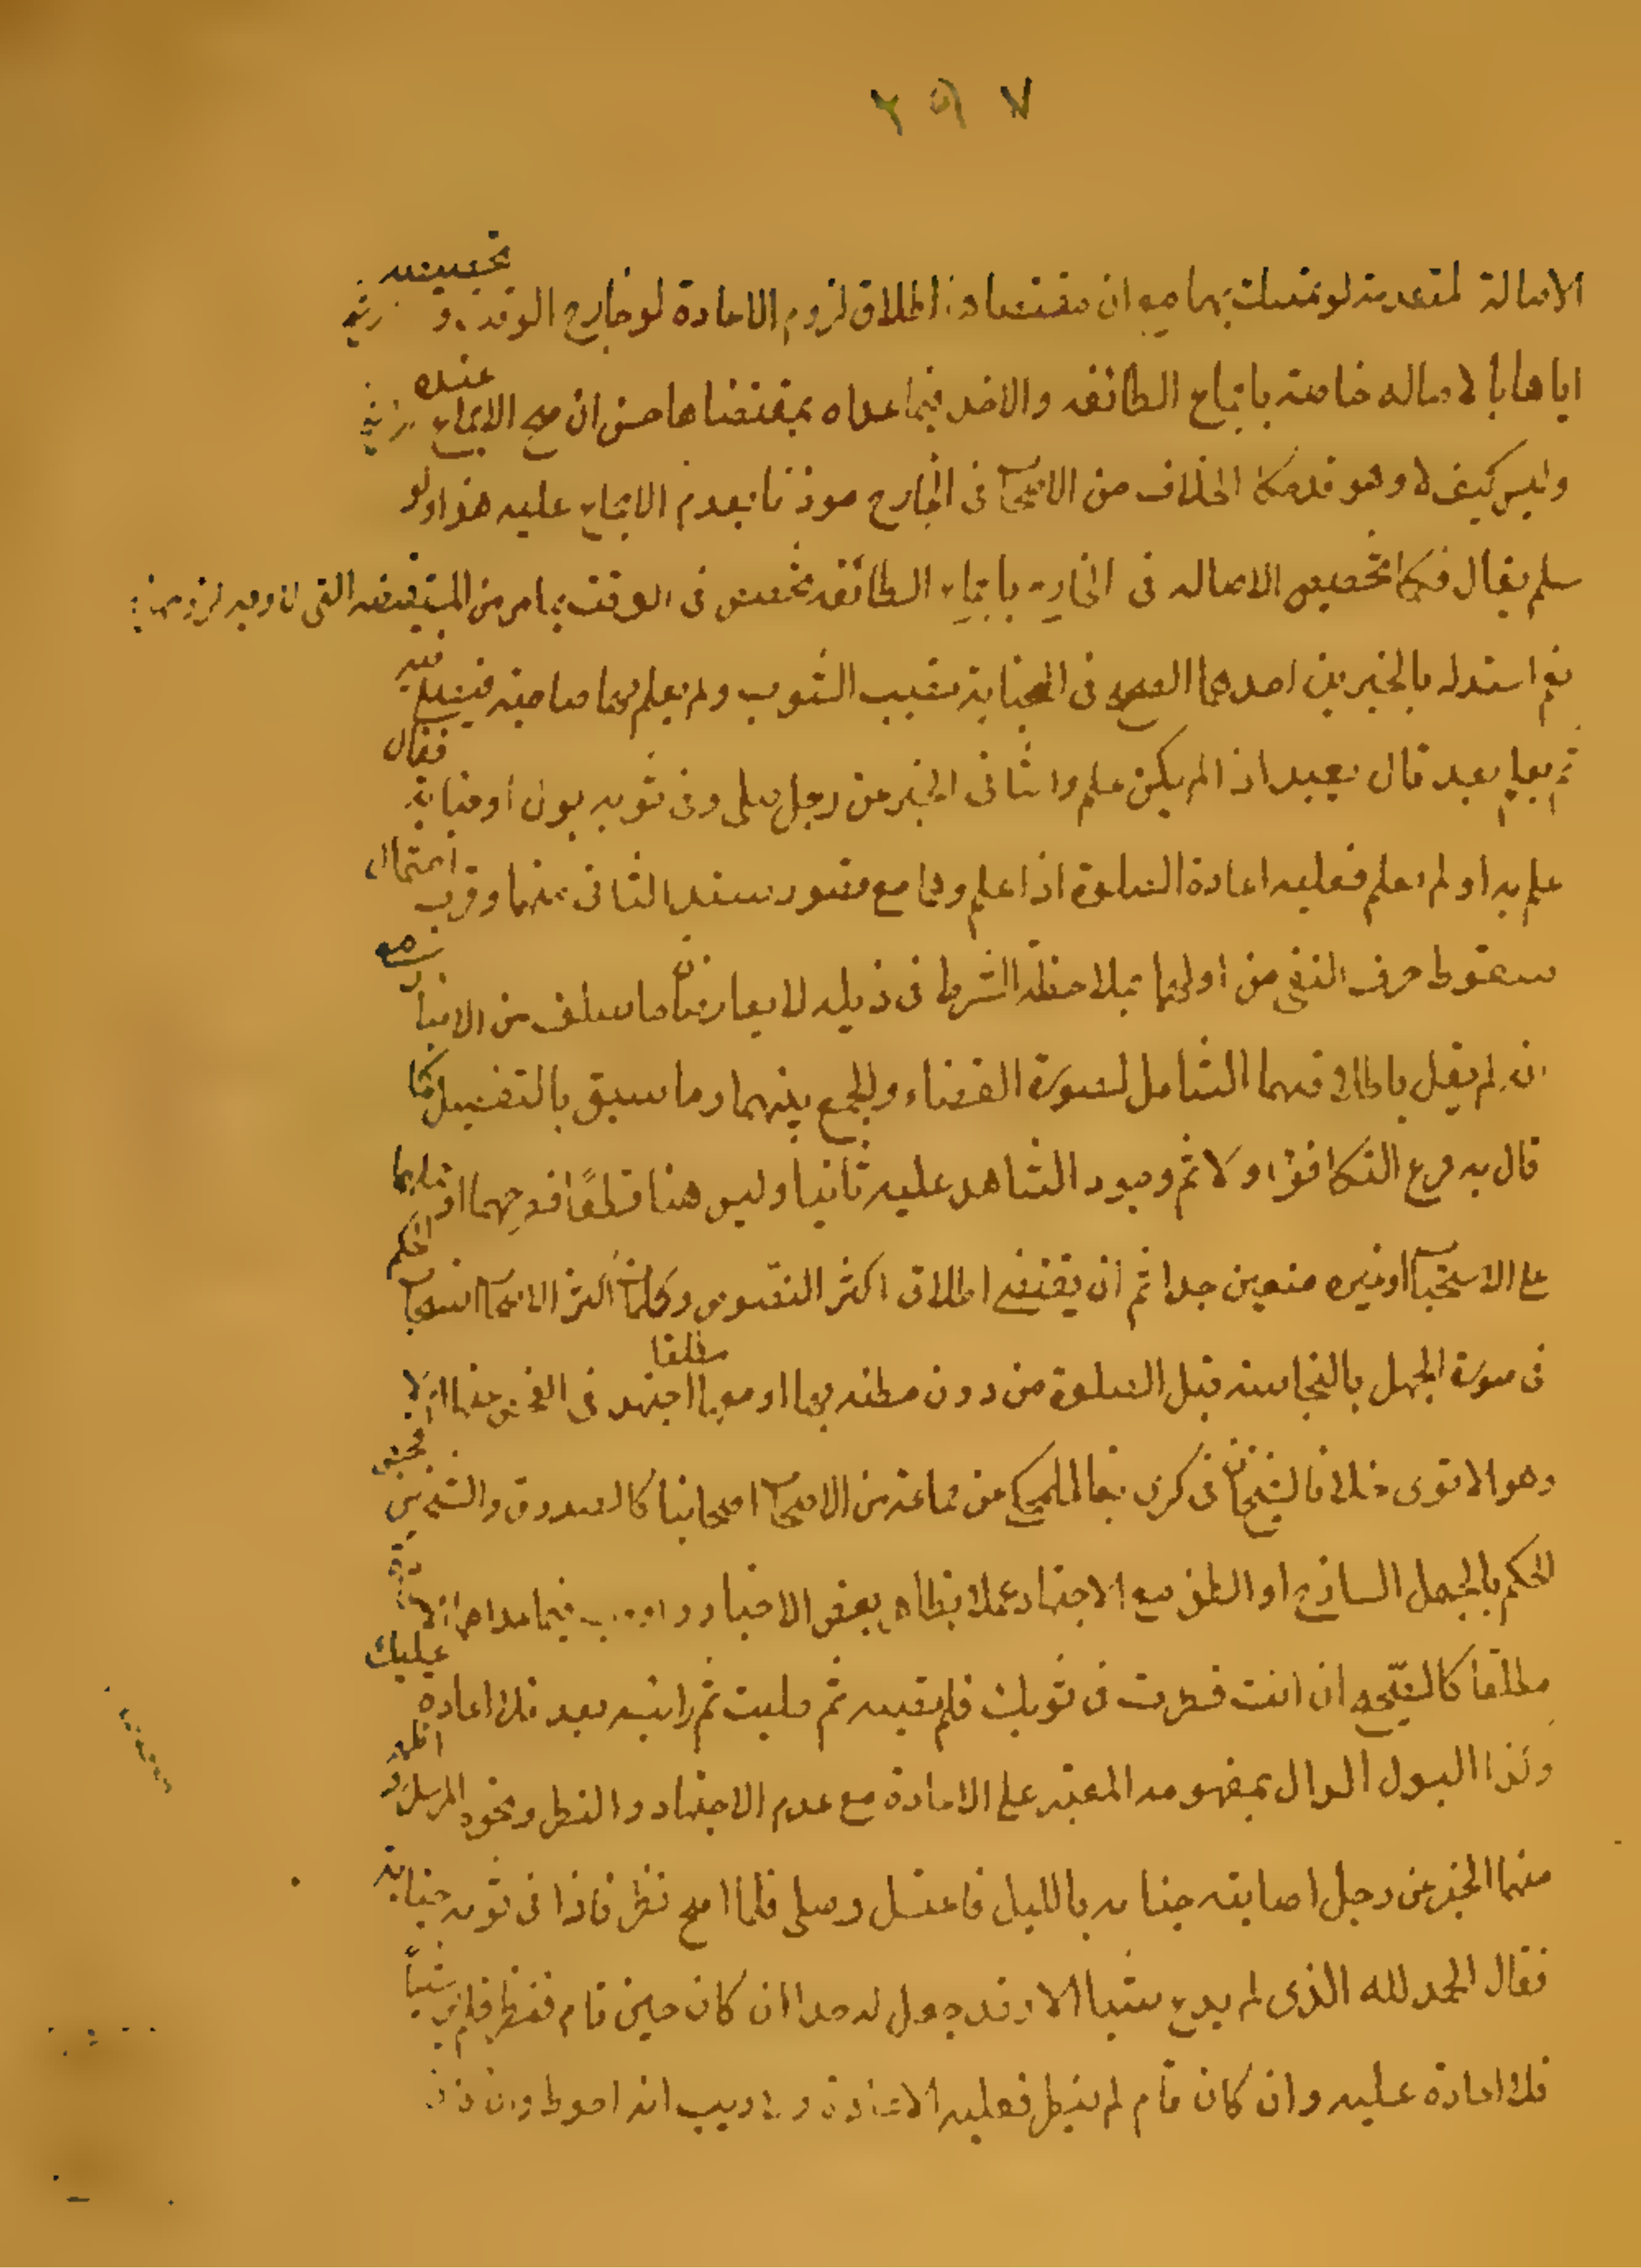 ٢٩٧
الاصالة المتقدمة لو تمسك بهما فيه ان مقتضاه اطلاق لزوم الاعادة لو خارج الوقت و تخصيصه
اياها بالاصاله خاصة باجماع الطائفه والاخذ فيما عداه بمقتضاها حسن ان صح الاجماع عنده
وليس كيف لا وهو قد حكى الخلاف من الاصحاب فى الخارج موذنا بعدم الاجماع عليه هذا ولو
سلم يقال فكما تخصيص الاصاله فى الخارج باجماع الطائفه تخصص فى الوقت بما مر من المستفيضه التى
نعم استدل بالخبرين احدهما الصحيح فى الجنابة تصيب الثوب ولم يعلم بها صاحبه فيصلى فيه
ثم يعلم بعد قال يعيد اذا لم يكن علم والثانى الخبر عن رجل صلى وفى ثوبه بول او جنابة فقال
علم به او لم يعلم فعليه اعادة الصلوة اذا علم وهما مع قصور سند الثانى منهما وقرب احتمال
سقوط حرف النفى من اولهما بملاحظة الشرط فى ذيله لا يعارضان ما سلف من الاخبار
ان لم يقل باطلاقهما الشامل لصورة القضاء والجمع بينهما وما سبق بالتفصيل كما
قال به فرع التكافؤ اولا ثم وجود الشاهد عليه ثانيا وليس هنا قطعًا فطرحهما او حملهما
على الاستحباب او غيره متعين جدا ثم ان يقتضى اطلاق اكثر النصوص وكلمة اكثر الاصحاب انسحاب الحكم
فى صورة الجهل بالنجاسة قبل الصلوة من دون مظنه بها او معها مطلقا اجتهد فى الفحص عنها ام لا
وهو الاقوى خلافا للشيخان فى كرى تبعا للمحكى عن جماعة من الاصحاب اصحابنا كالصدوق والشيخين
الحكم بالجهل الساذج او الظن مع الاجتهاد عملا بظاهر بعض الاخبار و فيما عداهما
مطلقا كالصحيح ان انت نظرت فى ثوبك فلم تصبه ثم صليت ثم رايته بعد فلا اعادة عليك
وكذا البول الدال بمفهومه المعتبر على الاعادة مع عدم الاجتهاد والنظر ونحوه المرسل و اظهر
منهما الخبر عن رجل اصابته جنابه بالليل فاغتسل وصلى فلما اصبح نظر فاذا فى ثوبه جنابة
فقال الحمد لله الذى لم يدع شيئا الا وقد جعل له حدا ان كان حين قام فنظر فلم ير شيئاً
فلا اعادة عليه وان كان قام لم ينظر فعليه الاعادة ولا ريب انه احوط وان كان